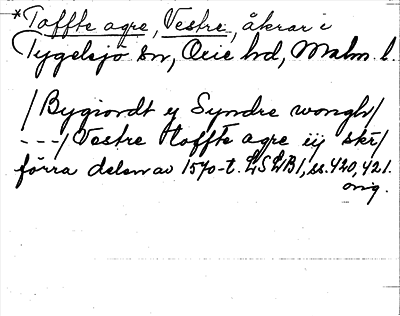 *Toffte agre, Vestre, åkrar i
Tygelsjö sn, Oxie hd, Malm. l.
/Bygiordt y Syndre wongh/
---/Vestre Toffte agre iij skr/
förra delen av 1570-t. LSLB1, ss. 420, 421.
orig.